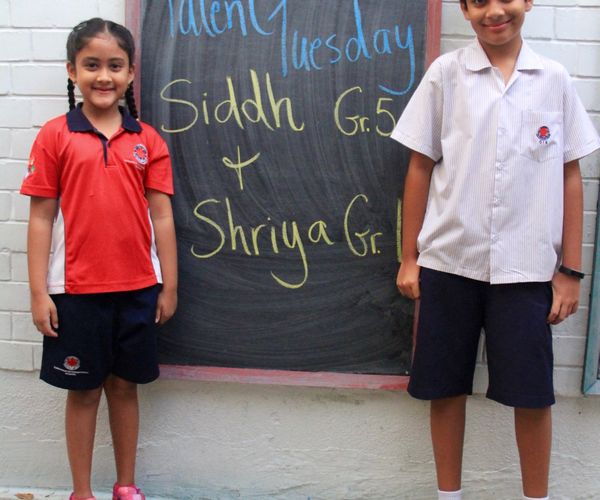 Talent Tuesday
Siddh Gr.5
+
Shriya Gr.1